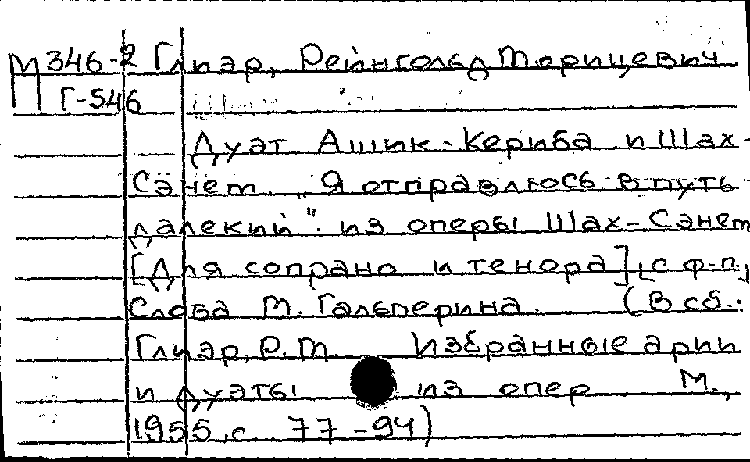 М 346-2 Глиэр, Рейнгольд Морицевич
Г-546
Дуэт Ашик-Кериба и Шах-
Сэнем. „Я отправлюсь в путь
далекий". из оперы Шах-Сэнем
[Для сопрано и тенора], с ф-п,
Слова М. Гальперина. (В сб.:
Глиэр, Р.М. Избранные арии
и дуэты из опер М.,
1955, с. 77-94)